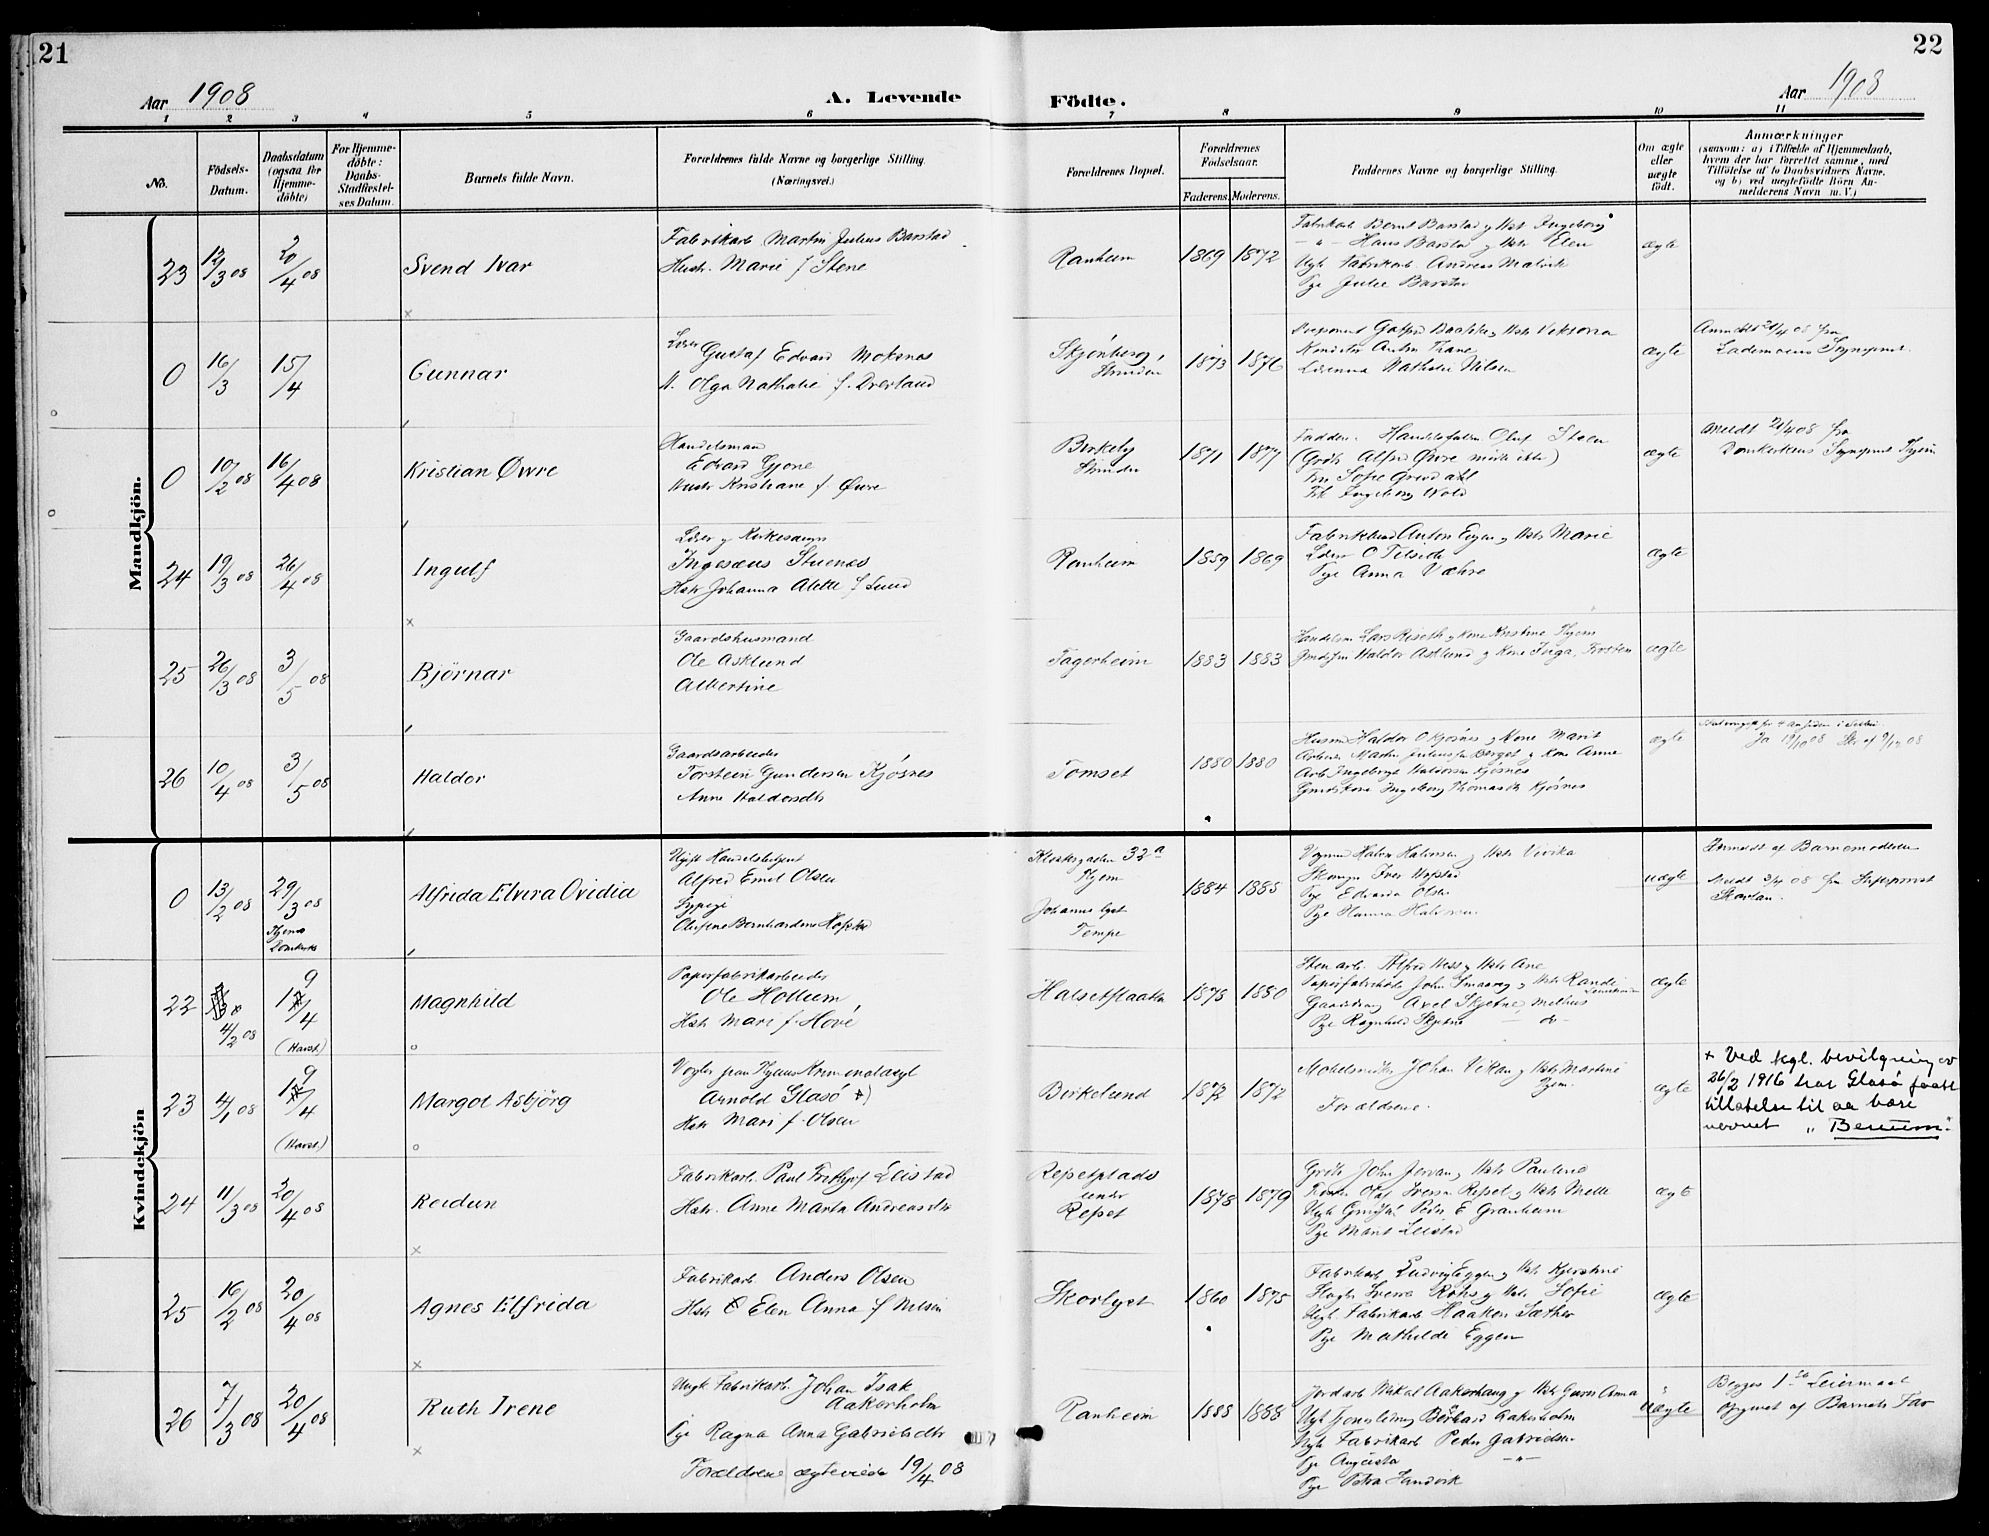 21
22
Aar 1908
A. Levende
Födte.
Aar 1908
1 2 3 4 5 6 7 8 9 10 11
No.
Födsels-
Datum.
Daabsdatum
(ogsaa for
Hjemme-
döbte)
For Hjemme-
döbte:
Daabs-
Stadfæstel-
ses Datum.
Barnets fulde Navn.
Forældrenes fulde Navne og borgerlige Stilling.
(Næringsvei.)
Forældrenes Bopæl.
Forældrenes
Födselsaar.
Faderens. Moderens.
Faddernes Navne og borgerlige Stilling.
Om ægte
eller
uægte
födt.
Anmærkninger
(saasom: a) i Tilfælde af Hjemmedaab,
hvem der har forrettet samme, med
Tilföielse af to Daabsvidners Navne.
og b) ved uægtefödte Börn An-
melderens Navn m. V.)
Mandkjön.
23 12/3 08 20/4 08 Svend Ivar
Fabrikarb Martin Julius Barstad
Hustr. Marie f Stene
Ranheim 1869 1872
Fabrikarb Bernt Barstad og Hstr Ingeborg
Hans Barstad og Hstr Elen
Ugk Fabrikarb. Andreas Malvik
Pge Julie Barstad
ægte
0 16/3 15/4 Gunnar
Lærer Gustaf Edvard Moksnes
H. Olga Nathalie f. Overland
Skjønberg,
Strinden
1873 1876
Anton Thane
Lærerinne Nathalie Nilsen
ægte
Anmeldt 21/4 08 fra
Lademoens Sogneprest.
0 10/2 08 16/4 08 Kristian Øvre
Handelsmand
Edvard Gjone
Hustr Kristiane f. Øvre
Birkely
Strinden
1871 1877
Faddere: Oluf Steen
(Grdb Alfred Øvre mødte ikke)
Fru Sofie
Frk Ingeborg Wold
ægte
Anmeldt 21/4 08 fra
Domkirkens Sogneprest Thjem
24 19/3 08 26/4 08 Ingulf
Lærer og Kirkesanger
Ingesæus Stuenes
Hstr Johanna Alette f Lund
Ranheim 1859 1869
Anton Eggen og Hstr Marie
Lærer O Tilseth
Pge Anna Væhre
ægte
25 26/3 08 3/5 08 Björnar
Gaardshusmand
Ole Asklund
Albertine
Fagerheim 1883 1883
Handelsm Lars Riseth og Kone Kristine Thjem
Haldor Asklund og Kone Inga, Frosten
ægte
26 10/4 08 3/5 08 Haldor
Gaardsarbeider
Torstein Gundersen Kjøsnes
Anne Haldorsdtr
Tomset 1880 1880
Husm Haldor O Kjøsnes og Kone Marit
Berget og Kone Anne
Arb Ingebrigt Haldorsen Kjøsnes
Ingeborg Thomasdtr Kjøsnes
ægte
Ja 19/10 08
Kvindekjön
0 13/2 08 29/3 08
Thjems
Domkirke
Alfrida Elvira Ovidia
Ugift Handelsbetjent
Alfred Emil Olsen
Sypige
Olufine Bernhardine Hofstad
Klostergaden 32a
Thjem
Johannes lyst
Tempe
1884 1885
Halvor Halvorsen og Hstr Vivika
Iver Hofstad
Pge Edvarda Olsen
Pge Hanna Halvorsen
uægte
Anmeldt af Barnemoderen
22 4/2 08 19/4
(Havst.)
Magnhild
Papirfabrikarbeider
Ole Hollum
Hstr Mari f. Hove
Halsetflaaten 1875 1880
Sten arb. Alfred Hess og Hstr Ane
John Smaaøy og Hstr Randi
Gaardsdreng Axel Skjetne, Melhus
Pge Ragnhild Skjetne — do —
ægte
23 4/1 08 19/4
(Havst.)
Margot Asbjörg
Vogter paa Thjems Kriminalasyl
Arnold Glasö +)
Hstr Mari f. Olsen
Birkelund 1873 1872
Møbelsnedker Johan Viktan og Hstr Martine
Thjem.
Forældrene.
ægte
+ Ved kgl. bevilgning av
26/2 1916 har Glasö faatt
tillatelse til aa bære
navnet „Benum".
24 11/3 08 20/4 08 Reidun
Fabrikarb. Paul Fritjof Leistad
Hstr. Anne Marta Andreasdtr
Repetplads
under
Repet
1878 1879
Grdb John Jervan og Hstr Pauline
Olaf Iversen Repet og Hstr Mette
Peder E Granheim
Pge Marit Leistad
ægte
25 16/2 08 20/4 08 Agnes Elfrida
Fabrikarb. Anders Olsen
Hstr Elen Anna f Nilsen
Skorlyst 1860 1875
Fabrikarb Ludvig Eggen og Hstr Kjerstine
Sverre Röhs og Hstr Sofie
Ugk Fabrikarb Haakon Sæther
Pge Mathilde Eggen
ægte
26 7/3 08 20/4 08 Ruth Irene
Ungk Fabrikarb. Johan Isak
Aakerholm
Pge Ragna Anna Gabrielsdtr
Forældrene ægteviede 19/4 08
Ranheim 1888 1888
Jordarb Mikal Aakerhaug og Hstr Guren Anna
Aakerholm
Ugk Fabrikarb Peder Gabrielsen
Pge Augusta
Pge Petra Sandvik
uægte
Begges 1ste Leiermaal
opgivet af Barnets Far